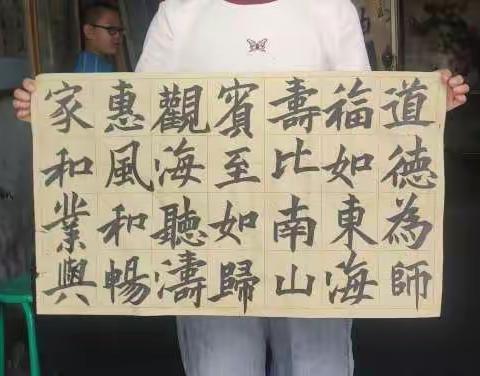 道德為師
福如東海
壽比南山
賓至如歸
觀海聽濤
惠風和暢
家和業興